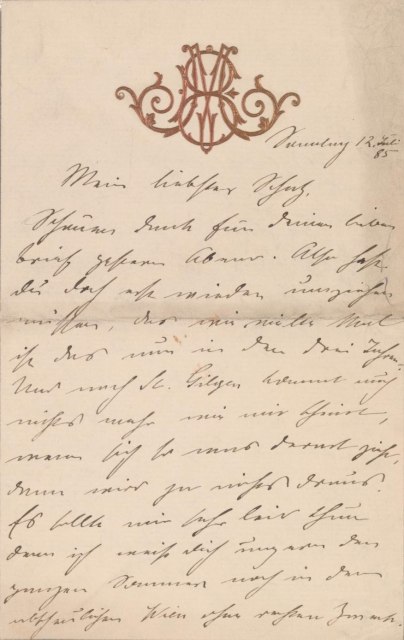 Sonntag 12. Juli
85
Mein liebster Schatz,
Schönen Dank für deinen lieben
Brief gestern Abend. Also hast
du doch erst wieder umziehen
müssen, das wie vielte Mal
ist das nun in den drei Jahren.
Und nach St. Gilgen kommt auch
nichts mehr wie mir scheint,
wenn sich so was derart zieht,
dann wird zu nichts draus.
Es sollte mir sehr leid thun
denn ich weiß dich ungern den
ganzen Sommer noch in dem
abscheulichen Wien ohne rechten Zweck.